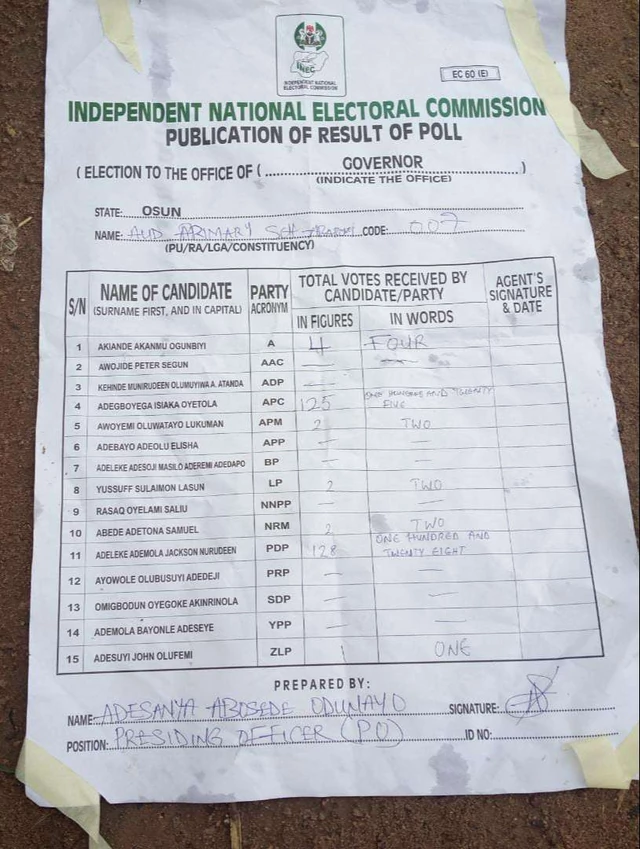 INEC
INDEPENDENT NATIONAL
ELECTORAL COMMISSION
EC 60 (E)
INDEPENDENT NATIONAL ELECTORAL COMMISSION
PUBLICATION OF RESULT OF POLL
( ELECTION TO THE OFFICE OF ( GOVERNOR )
(INDICATE THE OFFICE)
STATE: OSUN
NAME: AUD PRIMARY SCH CODE: 007
(PU/RA/LGA/CONSTITUENCY)
S/N NAME OF CANDIDATE (SURNAME FIRST, AND IN CAPITAL) PARTY ACRONYM TOTAL VOTES RECEIVED BY CANDIDATE/PARTY AGENT'S SIGNATURE & DATE
IN FIGURES IN WORDS
1 AKIANDE AKANMU OGUNBIYI A 4 FOUR
2 AWOJIDE PETER SEGUN AAC — —
3 KEHINDE MUNIRUDEEN OLUMUYIWA A. ATANDA ADP — —
4 ADEGBOYEGA ISIAKA OYETOLA APC 125 ONE HUNDRED AND TWENTY FIVE
5 AWOYEMI OLUWATAYO LUKUMAN APM 2 TWO
6 ADEBAYO ADEOLU ELISHA APP — —
7 ADELEKE ADESOJI MASILO ADEREMI ADEDAPO BP — —
8 YUSSUFF SULAIMON LASUN LP 2 TWO
9 RASAQ OYELAMI SALIU NNPP — —
10 ABEDE ADETONA SAMUEL NRM 2 TWO
11 ADELEKE ADEMOLA JACKSON NURUDEEN PDP 128 ONE HUNDRED AND TWENTY EIGHT
12 AYOWOLE OLUBUSUYI ADEDEJI PRP — —
13 OMIGBODUN OYEGOKE AKINRINOLA SDP — —
14 ADEMOLA BAYONLE ADESEYE YPP — —
15 ADESUYI JOHN OLUFEMI ZLP 1 ONE
PREPARED BY:
NAME: ADESANYA ABOSEDE ODUNAYO SIGNATURE:
POSITION: PRESIDING OFFICER (PO) ID NO: